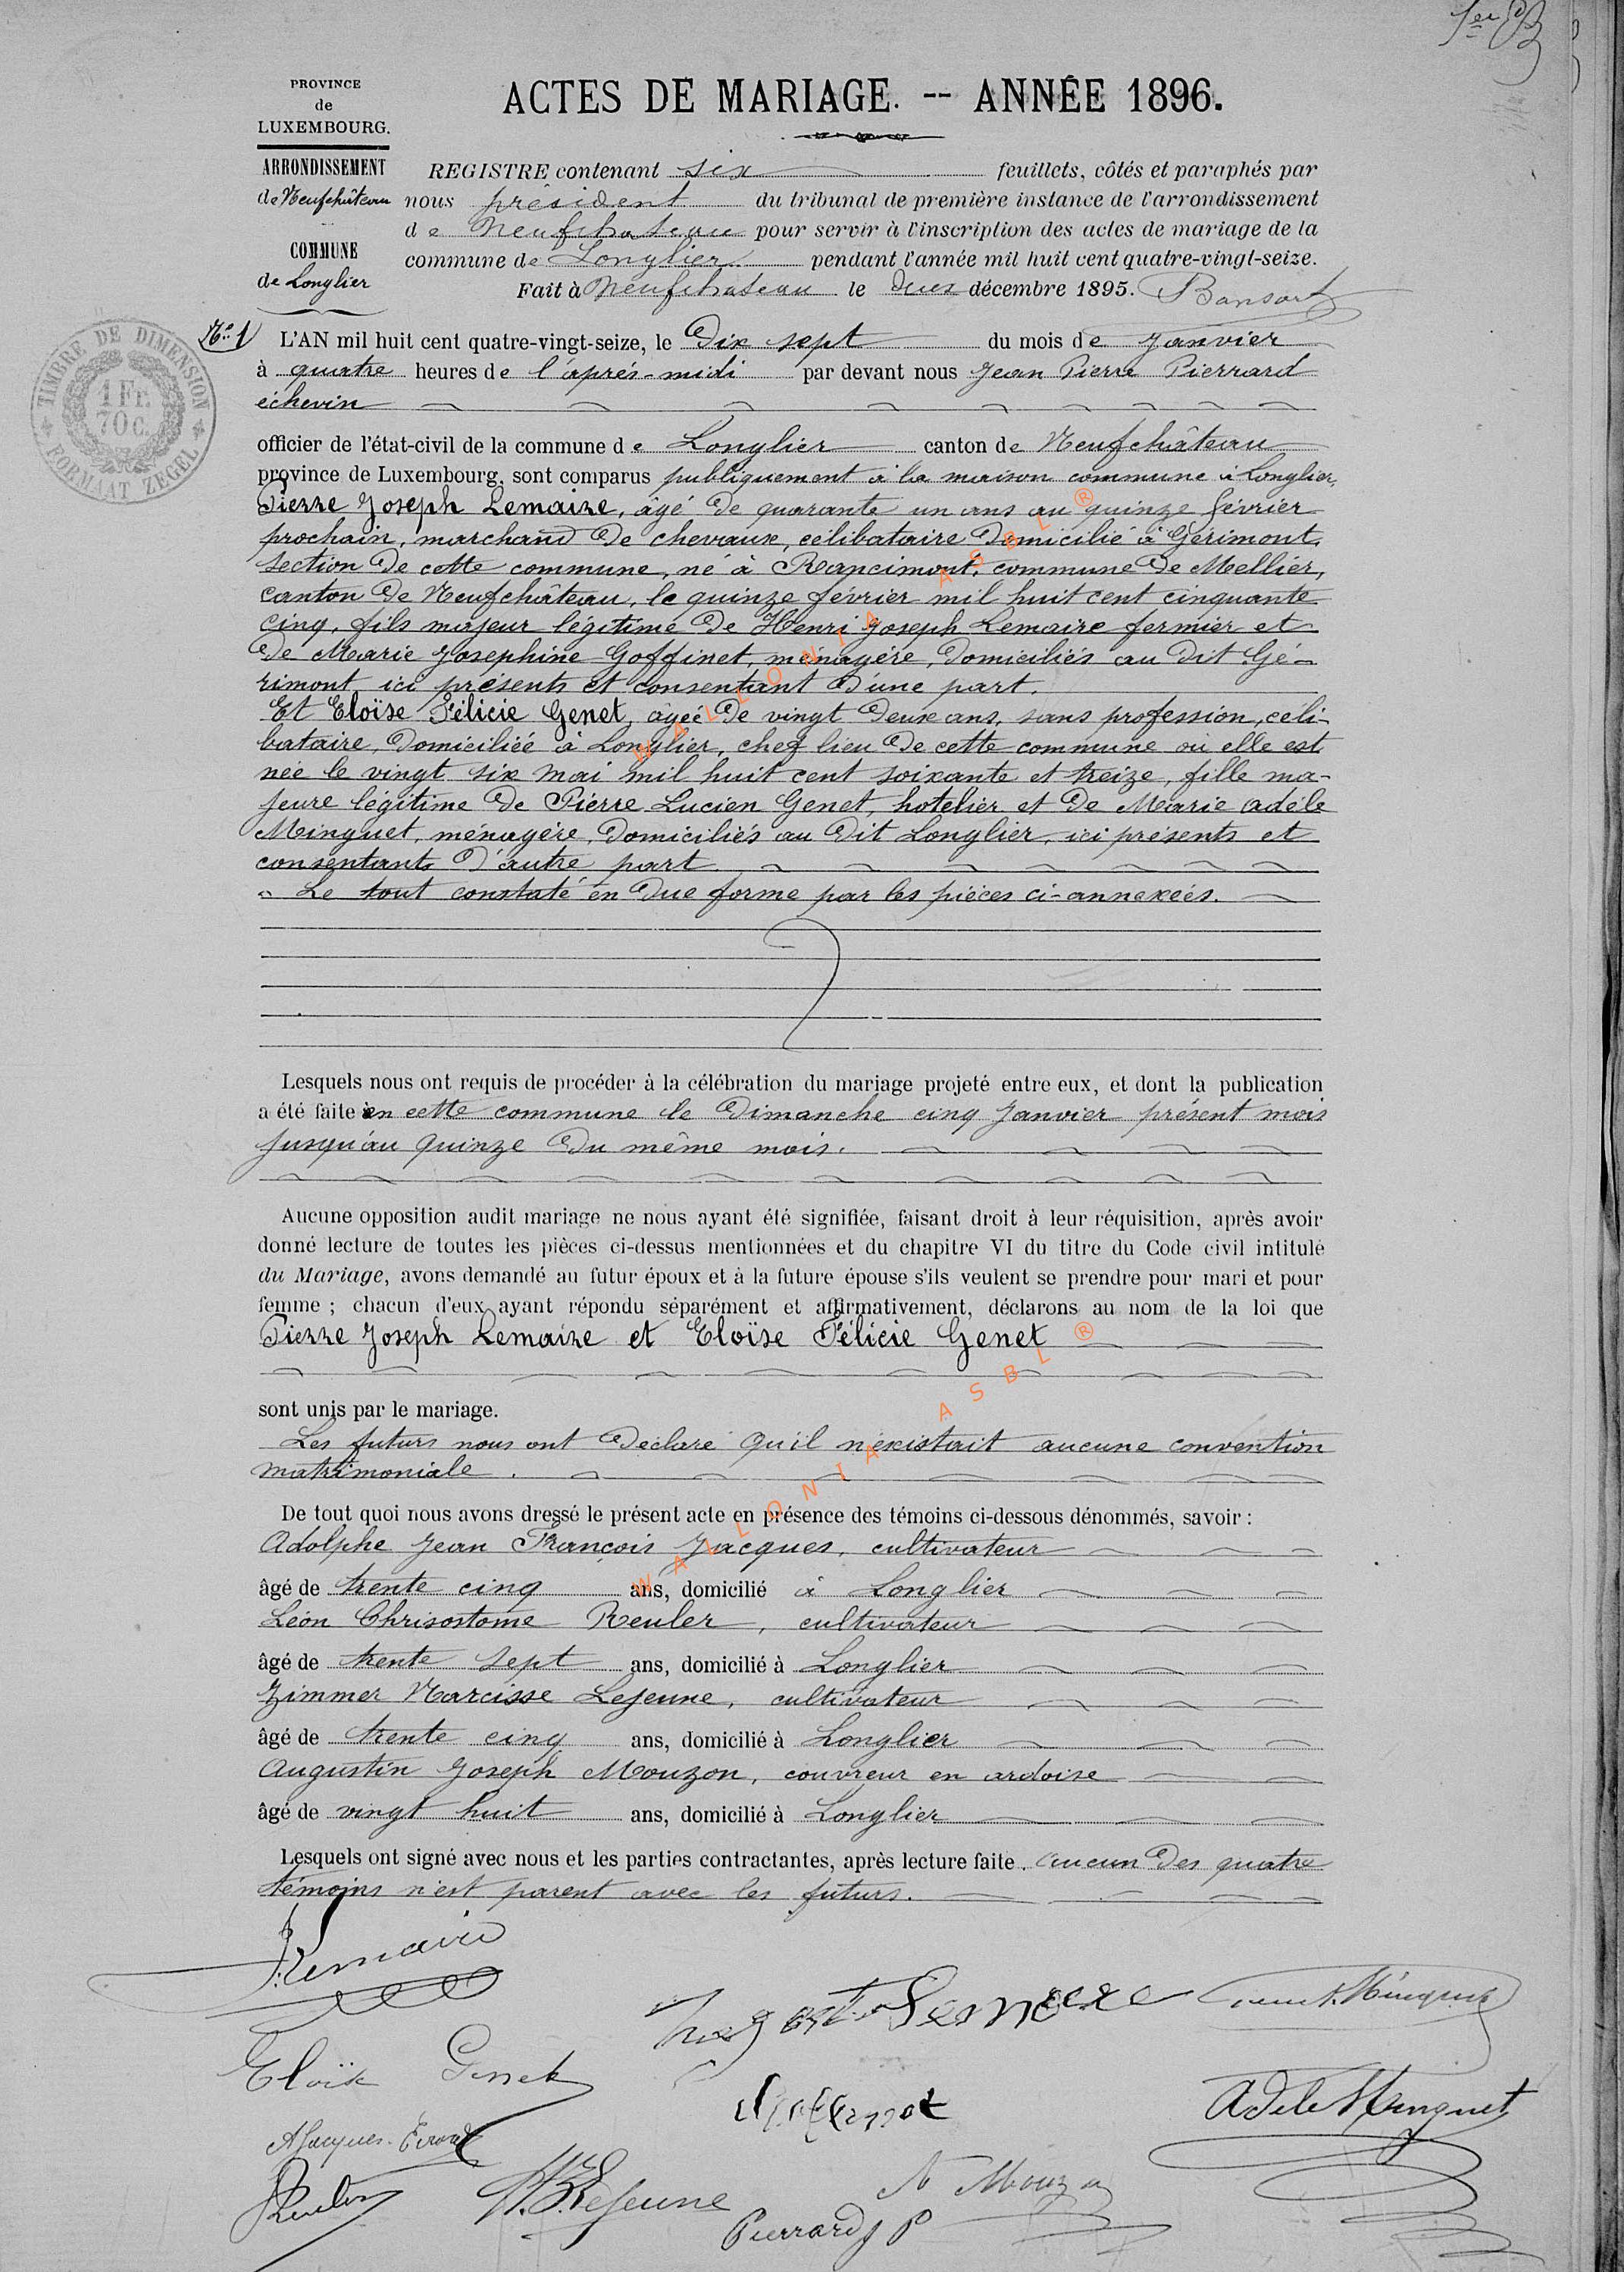 1er B
PROVINCE
de
LUXEMBOURG.
ARRONDISSEMENT
de Neufchâteau
COMMUNE
de Longlier
ACTES DE MARIAGE. -- ANNÉE 1896.
REGISTRE contenant six feuillets, côtés et paraphés par
nous président du tribunal de première instance de l'arrondissement
de Neufchateau pour servir à l'inscription des actes de mariage de la
commune de Longlier pendant l'année mil huit cent quatre-vingt-seize.
Fait à Neufchateau le décembre 1895.
TIMBRE DE DIMENSION
1 Fr.
70 C.
FORMAAT ZEGEL
No 1 L'AN mil huit cent quatre-vingt-seize, le Dix sept du mois de Janvier
à quatre heures de l'après-midi par devant nous Jean Pierre Pierrard
échevin
officier de l'état-civil de la commune de Longlier canton de Neufchâteau
province de Luxembourg, sont comparus publiquement à la maison commune à Longlier,
Pierre Joseph Lemaire, âgé de quarante un ans au quinze février
prochain, marchand de chevaux, célibataire domicilié à Gérimont,
section de cette commune, né à Rancimont, commune de Mellier,
canton de Neufchâteau, le quinze février mil huit cent cinquante
cinq, fils majeur légitime de Henri Joseph Lemaire fermier et
de Marie Josephine Goffinet, ménagère, domiciliés au dit Gé-
rimont ici présents et consentant d'une part.
Et Eloïse Félicie Genet, âgée de vingt deux ans, sans profession, céli-
bataire, domiciliée à Longlier, chef lieu de cette commune où elle est
née le vingt six mai mil huit cent soixante et treize, fille ma-
jeure légitime de Pierre Lucien Genet, hotelier et de Marie Adèle
Minguet, ménagère, domiciliés au dit Longlier, ici présents et
consentants d'autre part
Le tout constaté en due forme par les pièces ci-annexées.
Lesquels nous ont requis de procéder à la célébration du mariage projeté entre eux, et dont la publication
a été faite en cette commune le Dimanche cinq Janvier présent mois
jusqu'au quinze du même mois.
Aucune opposition audit mariage ne nous ayant été signifiée, faisant droit à leur réquisition, après avoir
donné lecture de toutes les pièces ci-dessus mentionnées et du chapitre VI du titre du Code civil intitulé
du Mariage, avons demandé au futur époux et à la future épouse s'ils veulent se prendre pour mari et pour
femme ; chacun d'eux ayant répondu séparément et affirmativement, déclarons au nom de la loi que
Pierre Joseph Lemaire et Eloïse Félicie Genet
sont unis par le mariage.
Les futurs nous ont déclaré qu'il n'existait aucune convention
matrimoniale.
De tout quoi nous avons dressé le présent acte en présence des témoins ci-dessous dénommés, savoir :
Adolphe Jean François Jacques, cultivateur
âgé de trente cinq ans, domicilié à Longlier
Léon Chrisostome Reuler, cultivateur
âgé de trente sept ans, domicilié à Longlier
Zimmer Narcisse Lejeune, cultivateur
âgé de trente cinq ans, domicilié à Longlier
Augustin Joseph Mouzon, couvreur en ardoise
âgé de vingt huit ans, domicilié à Longlier
Lesquels ont signé avec nous et les parties contractantes, après lecture faite. Aucun des quatre
témoins n'est parent avec les futurs.
WALLONIA ASBL ®
WALLONIA ASBL ®
Lemaire
Eloïse Genet
Adèle Minguet
Lejeune
A Mouzon
Pierrard J P